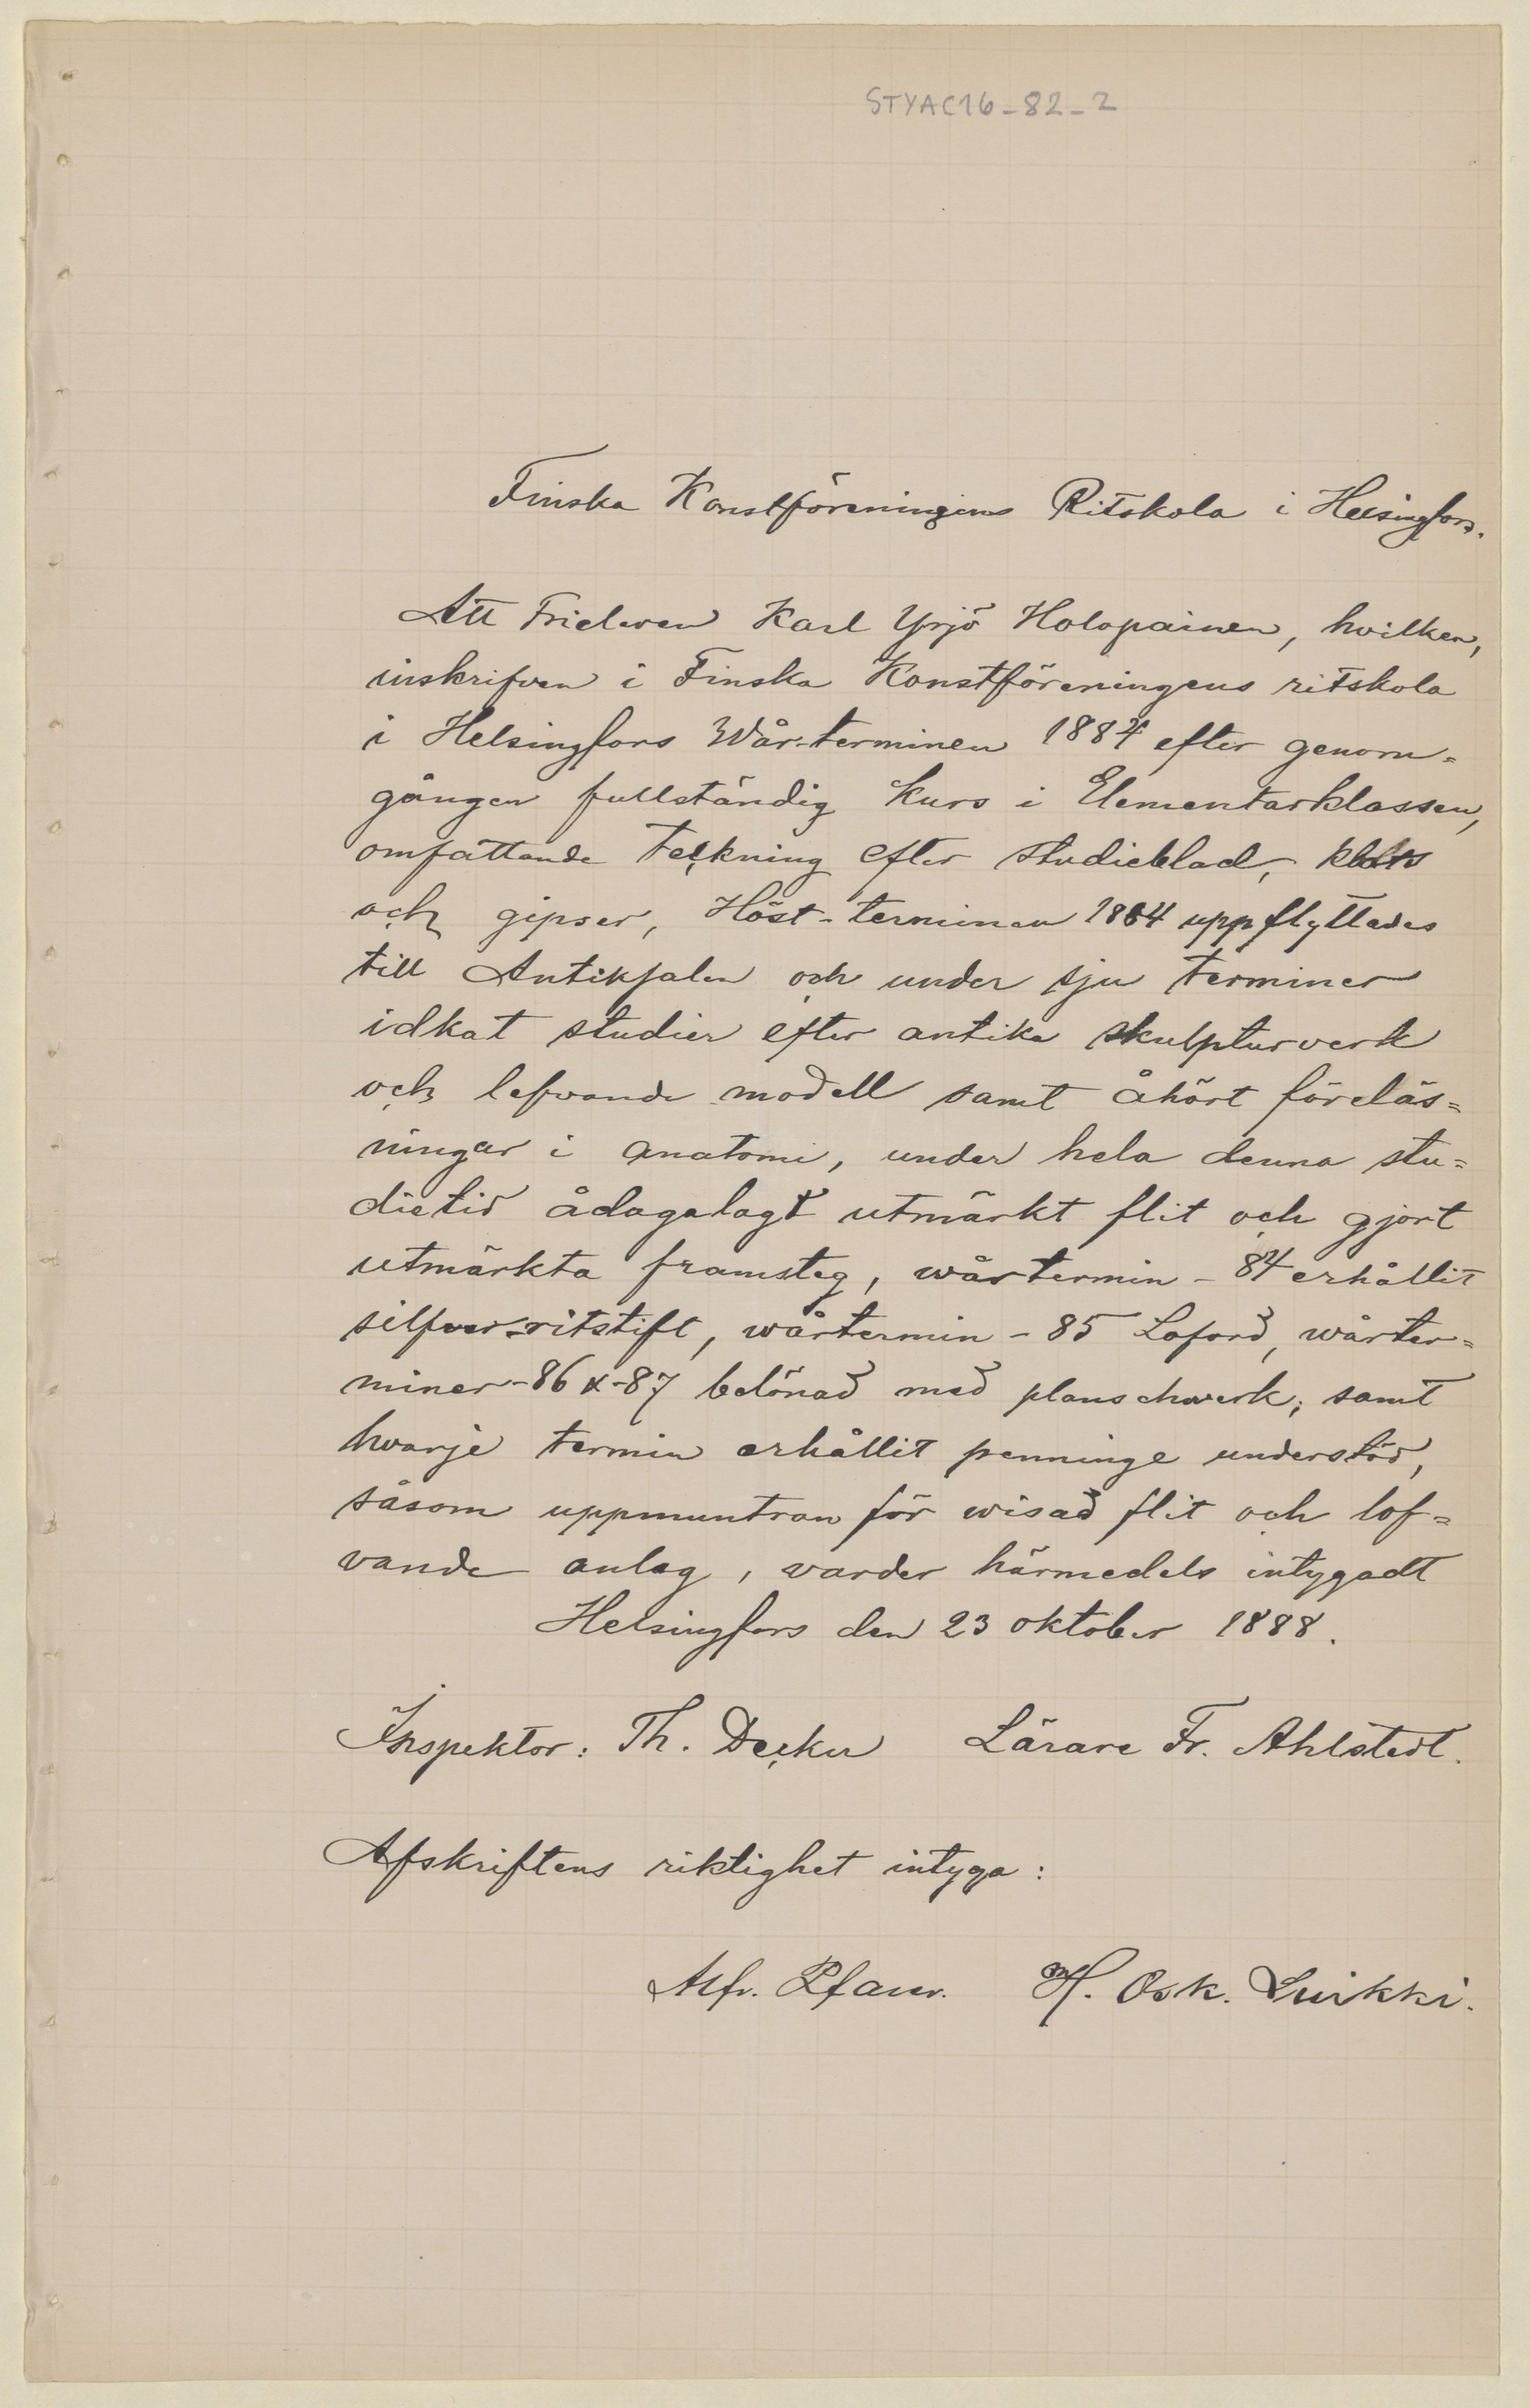 STYAC16-82-2
Finska Konstföreningens Ritskola i Helsingfors.
Att Frieleven Karl Yrjö Holopainen, hvilken,
inskrifven i Finska Konstföreningens ritskola
i Helsingfors Wår-terminen 1884 efter genom=
gången fullständig kurs i Elementarklassen,
omfattande teckning efter studieblad, klots
och gipser, Höst-terminen 1884 uppflyttades
till Antiksalen och under sju terminer
idkat studier efter antika skulpturverk
och lefvande modell samt åhört föreläs=
ningar i anatomi, under hela denna stu=
dietid ådagalagt utmärkt flit och gjort
utmärkta framsteg, wårtermin -84 erhållit
silfver-ritstift, wårtermin -85 Loford, wårter=
miner -86 & -87 belönad med planschwerk; samt
hvarje termin erhållit penninge understöd,
såsom uppmuntran för wisad flit och lof=
vande anlag, varder härmedels intygadt
Helsingfors den 23 oktober 1888.
Inspektor: Th. Decker Lärare Fr. Ahlstedt.
Afskriftens riktighet intyga:
Alfr. H. Osk.